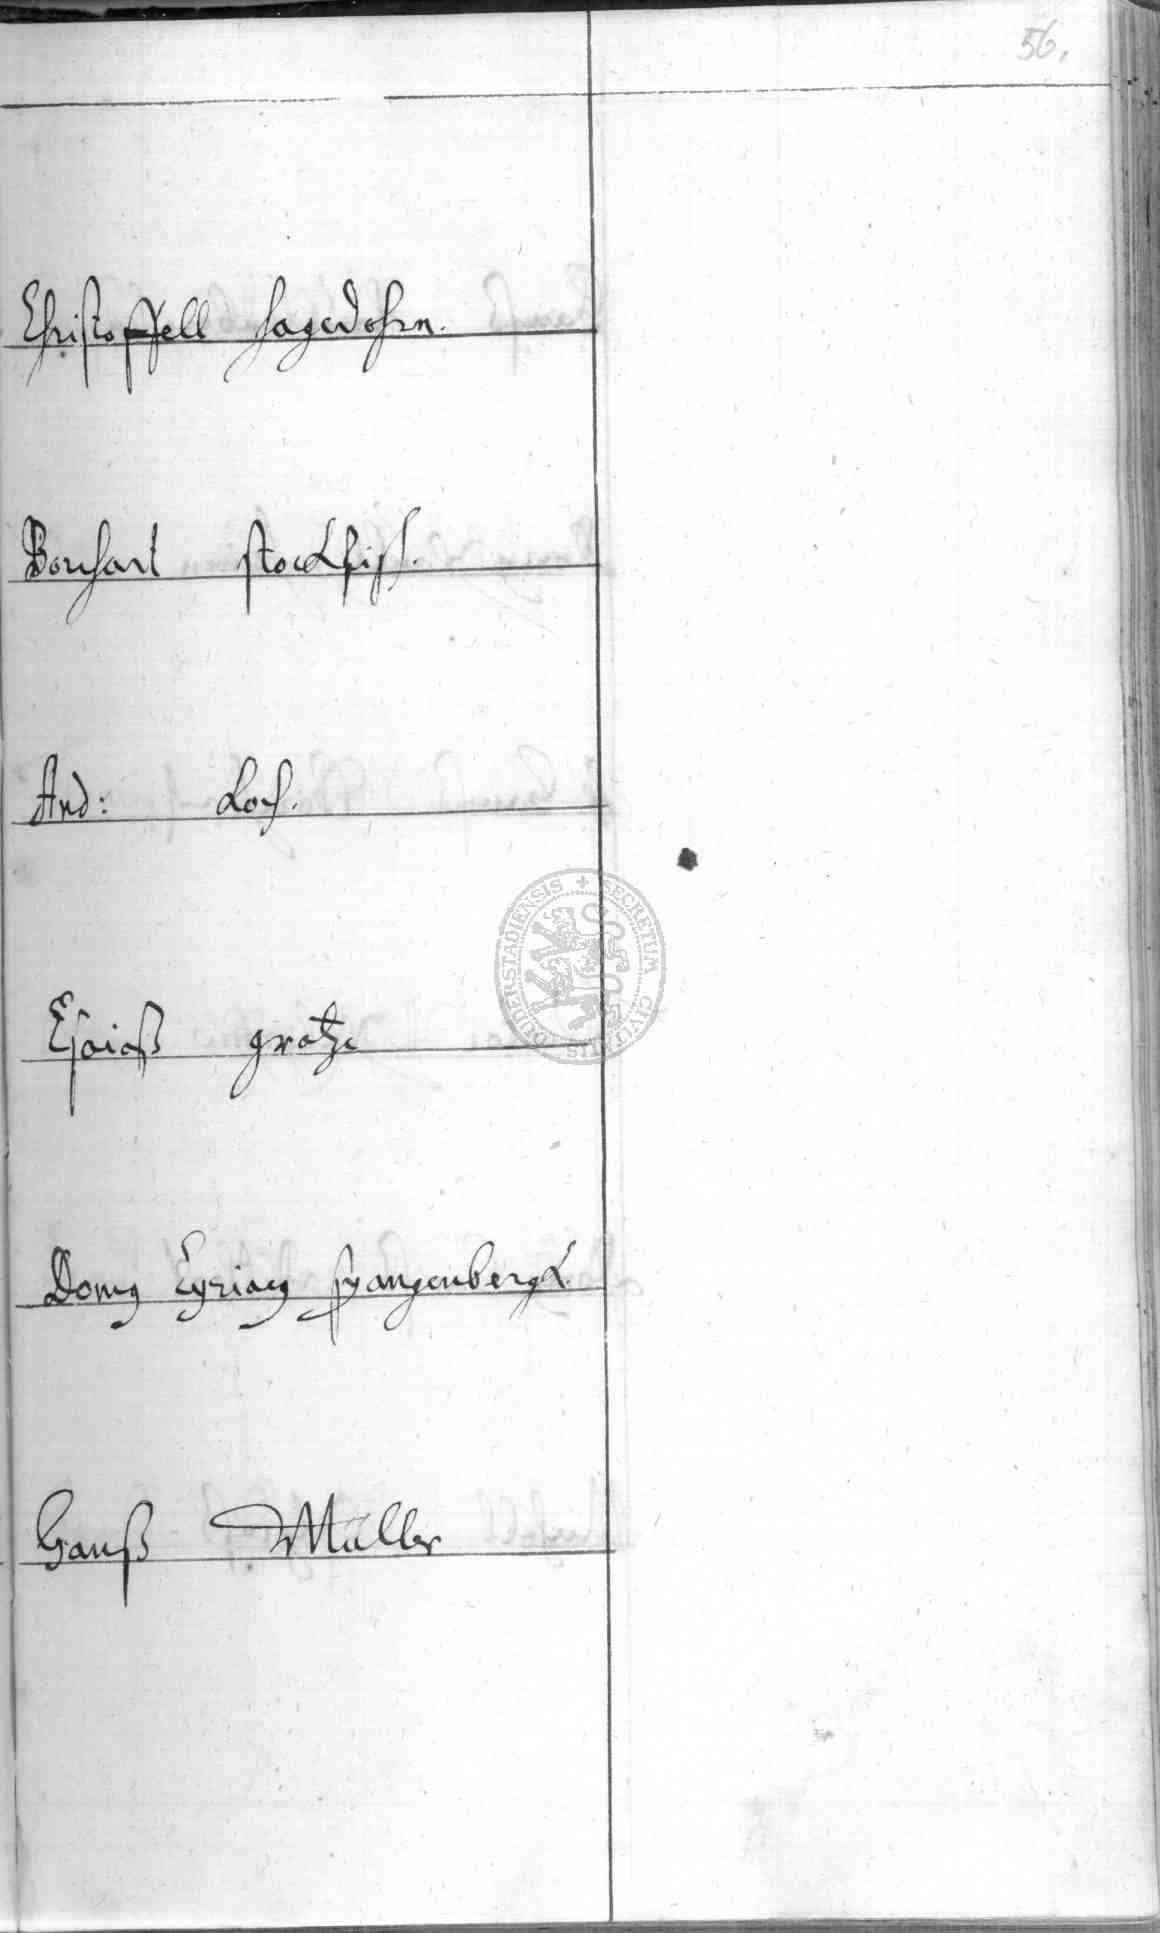 56.
Christoffell Hagedohrn.
Borchart stockfisch.
And: Loch.
Esaiaß grotze
Domus Cyriacus spangenbergk.
Hanß Müller
SECRETUM CIVITATIS DUDERSTADIENSIS